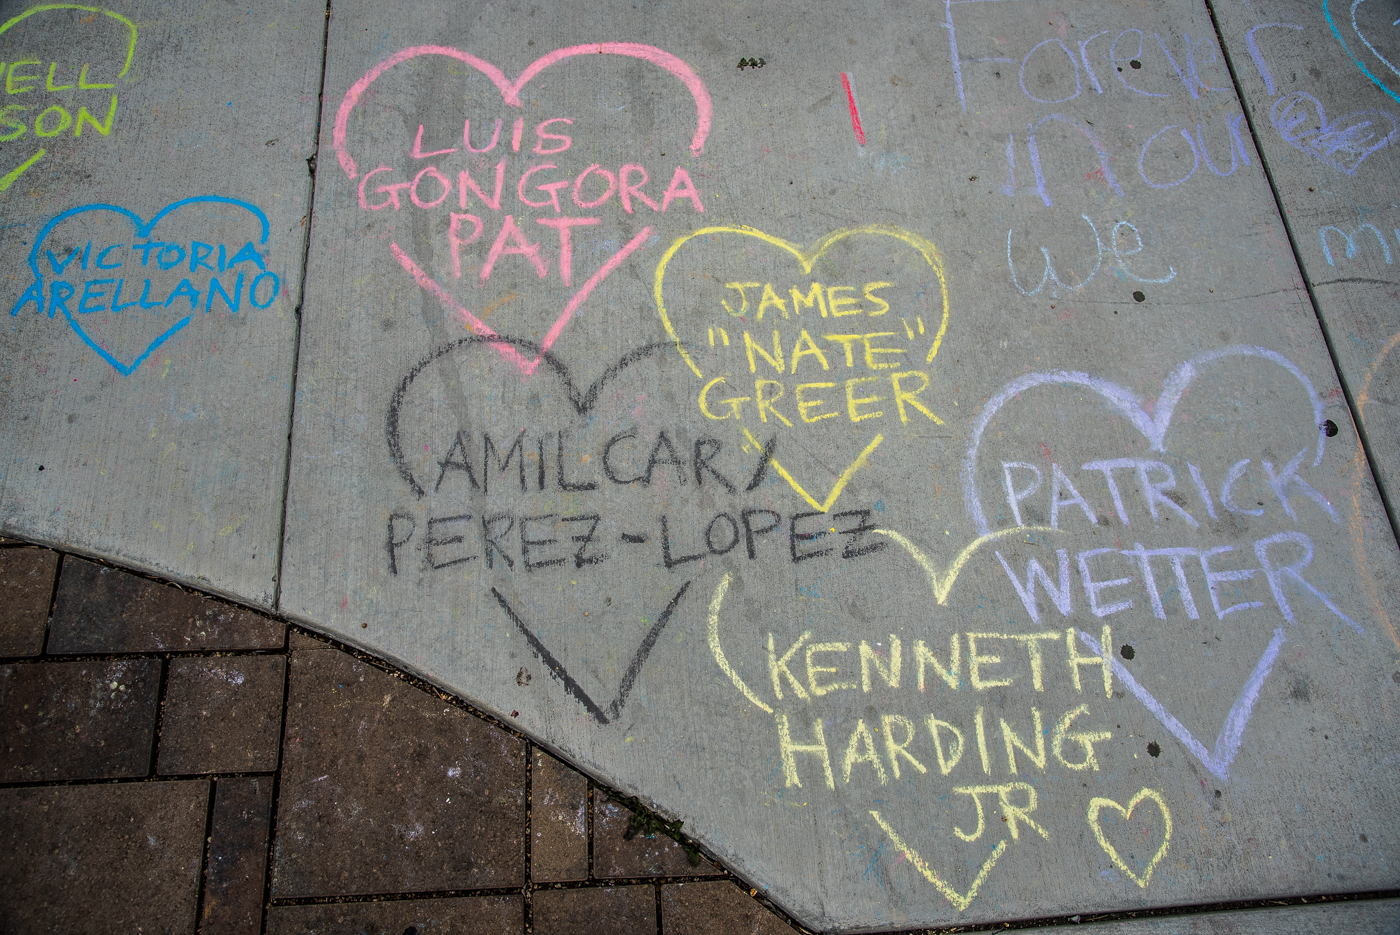 LUIS
GONGORA
PAT
VICTORIA
ARELLANO
JAMES
"NATE"
GREER
AMILCAR
PEREZ-LOPEZ
PATRICK
WETTER
KENNETH
HARDING
JR
Forever
in our
we